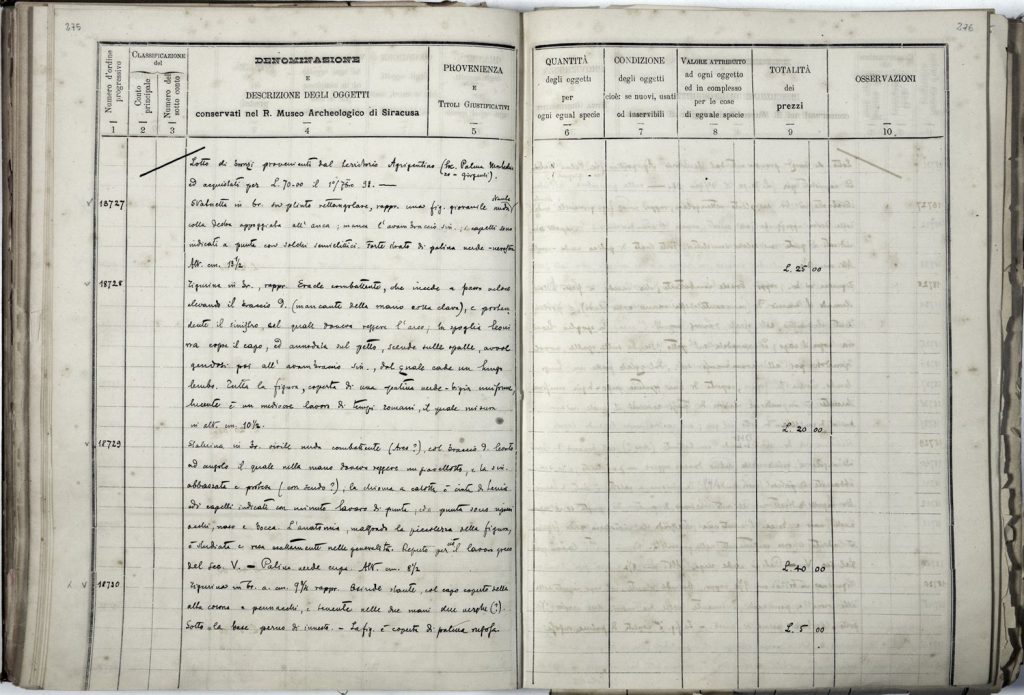 275
Numero d'ordine progressivo
CLASSIFICAZIONE
del
Conto principale
Numero del sotto conto
DENOMINAZIONE
E
DESCRIZIONE DEGLI OGGETTI
conservati nel R. Museo Archeologico di Siracusa
PROVENIENZA
E
TITOLI GIUSTIFICATIVI
1 2 3 4 5
Lotto di bronzi provenienti dal territorio Agrigentino
ed acquistati per L. 70.00 il
18727 Statuetta in br. su plinto rettangolare, rappr. una fig. giovanile nuda
colla destra appoggiata all'anca; manca l'avambraccio sin.; i capelli sono
indicati a punta con solchi Forte strato di patina verde
Alt. cm. 13½
18728 Figurina in br., rappr. Eracle combattente, che incede a passo veloce
elevando il braccio d. (mancante della mano colla clava), e proten
dente il sinistro, nel quale doveva reggere l'arco; la spoglia leoni
na copre il capo, ed annodata sul petto, scende sulle spalle, avvol
gendosi poi all'avambraccio sin., dal quale cade un lungo
lembo. Tutta la figura, coperta di una patina verde-bigia uniforme
lucente è un mediocre lavoro di tempi romani, il quale misura
in alt. cm. 10½.
18729 Statuina in br. virile nuda combattente (Ares?), col braccio d.
ad angolo il quale nella mano doveva reggere un giavellotto, e la sin.
abbassata e protesa (con scudo?), la chioma a calotta è cinta di
di capelli indicati con minuto lavoro di punta, a punta sono
occhi, naso e bocca. L'anatomia, malgrado la piccolezza della figura,
è studiata e resa esattamente nelle generalità. Reputo per il lavoro greco
del Sec. V. – Patina verde cupa. Alt. cm. 8½
18730 Figurina in br. a. cm. 9¾ rappr. Osiride stante, col capo coperto della
alta corona a pennacchi, e tenente nelle due mani due verghe (?).
Sotto la base perno di innesto. – La fig. è coperta di patina
276
QUANTITÀ
degli oggetti
per
ogni egual specie
CONDIZIONE
degli oggetti
cioè: se nuovi, usati
od inservibili
VALORE ATTRIBUITO
ad ogni oggetto
od in complesso
per le cose
di eguale specie
TOTALITÀ
dei
prezzi
OSSERVAZIONI
6 7 8 9 10
L. 25 00
L. 20 00
L. 40 00
L. 5 00